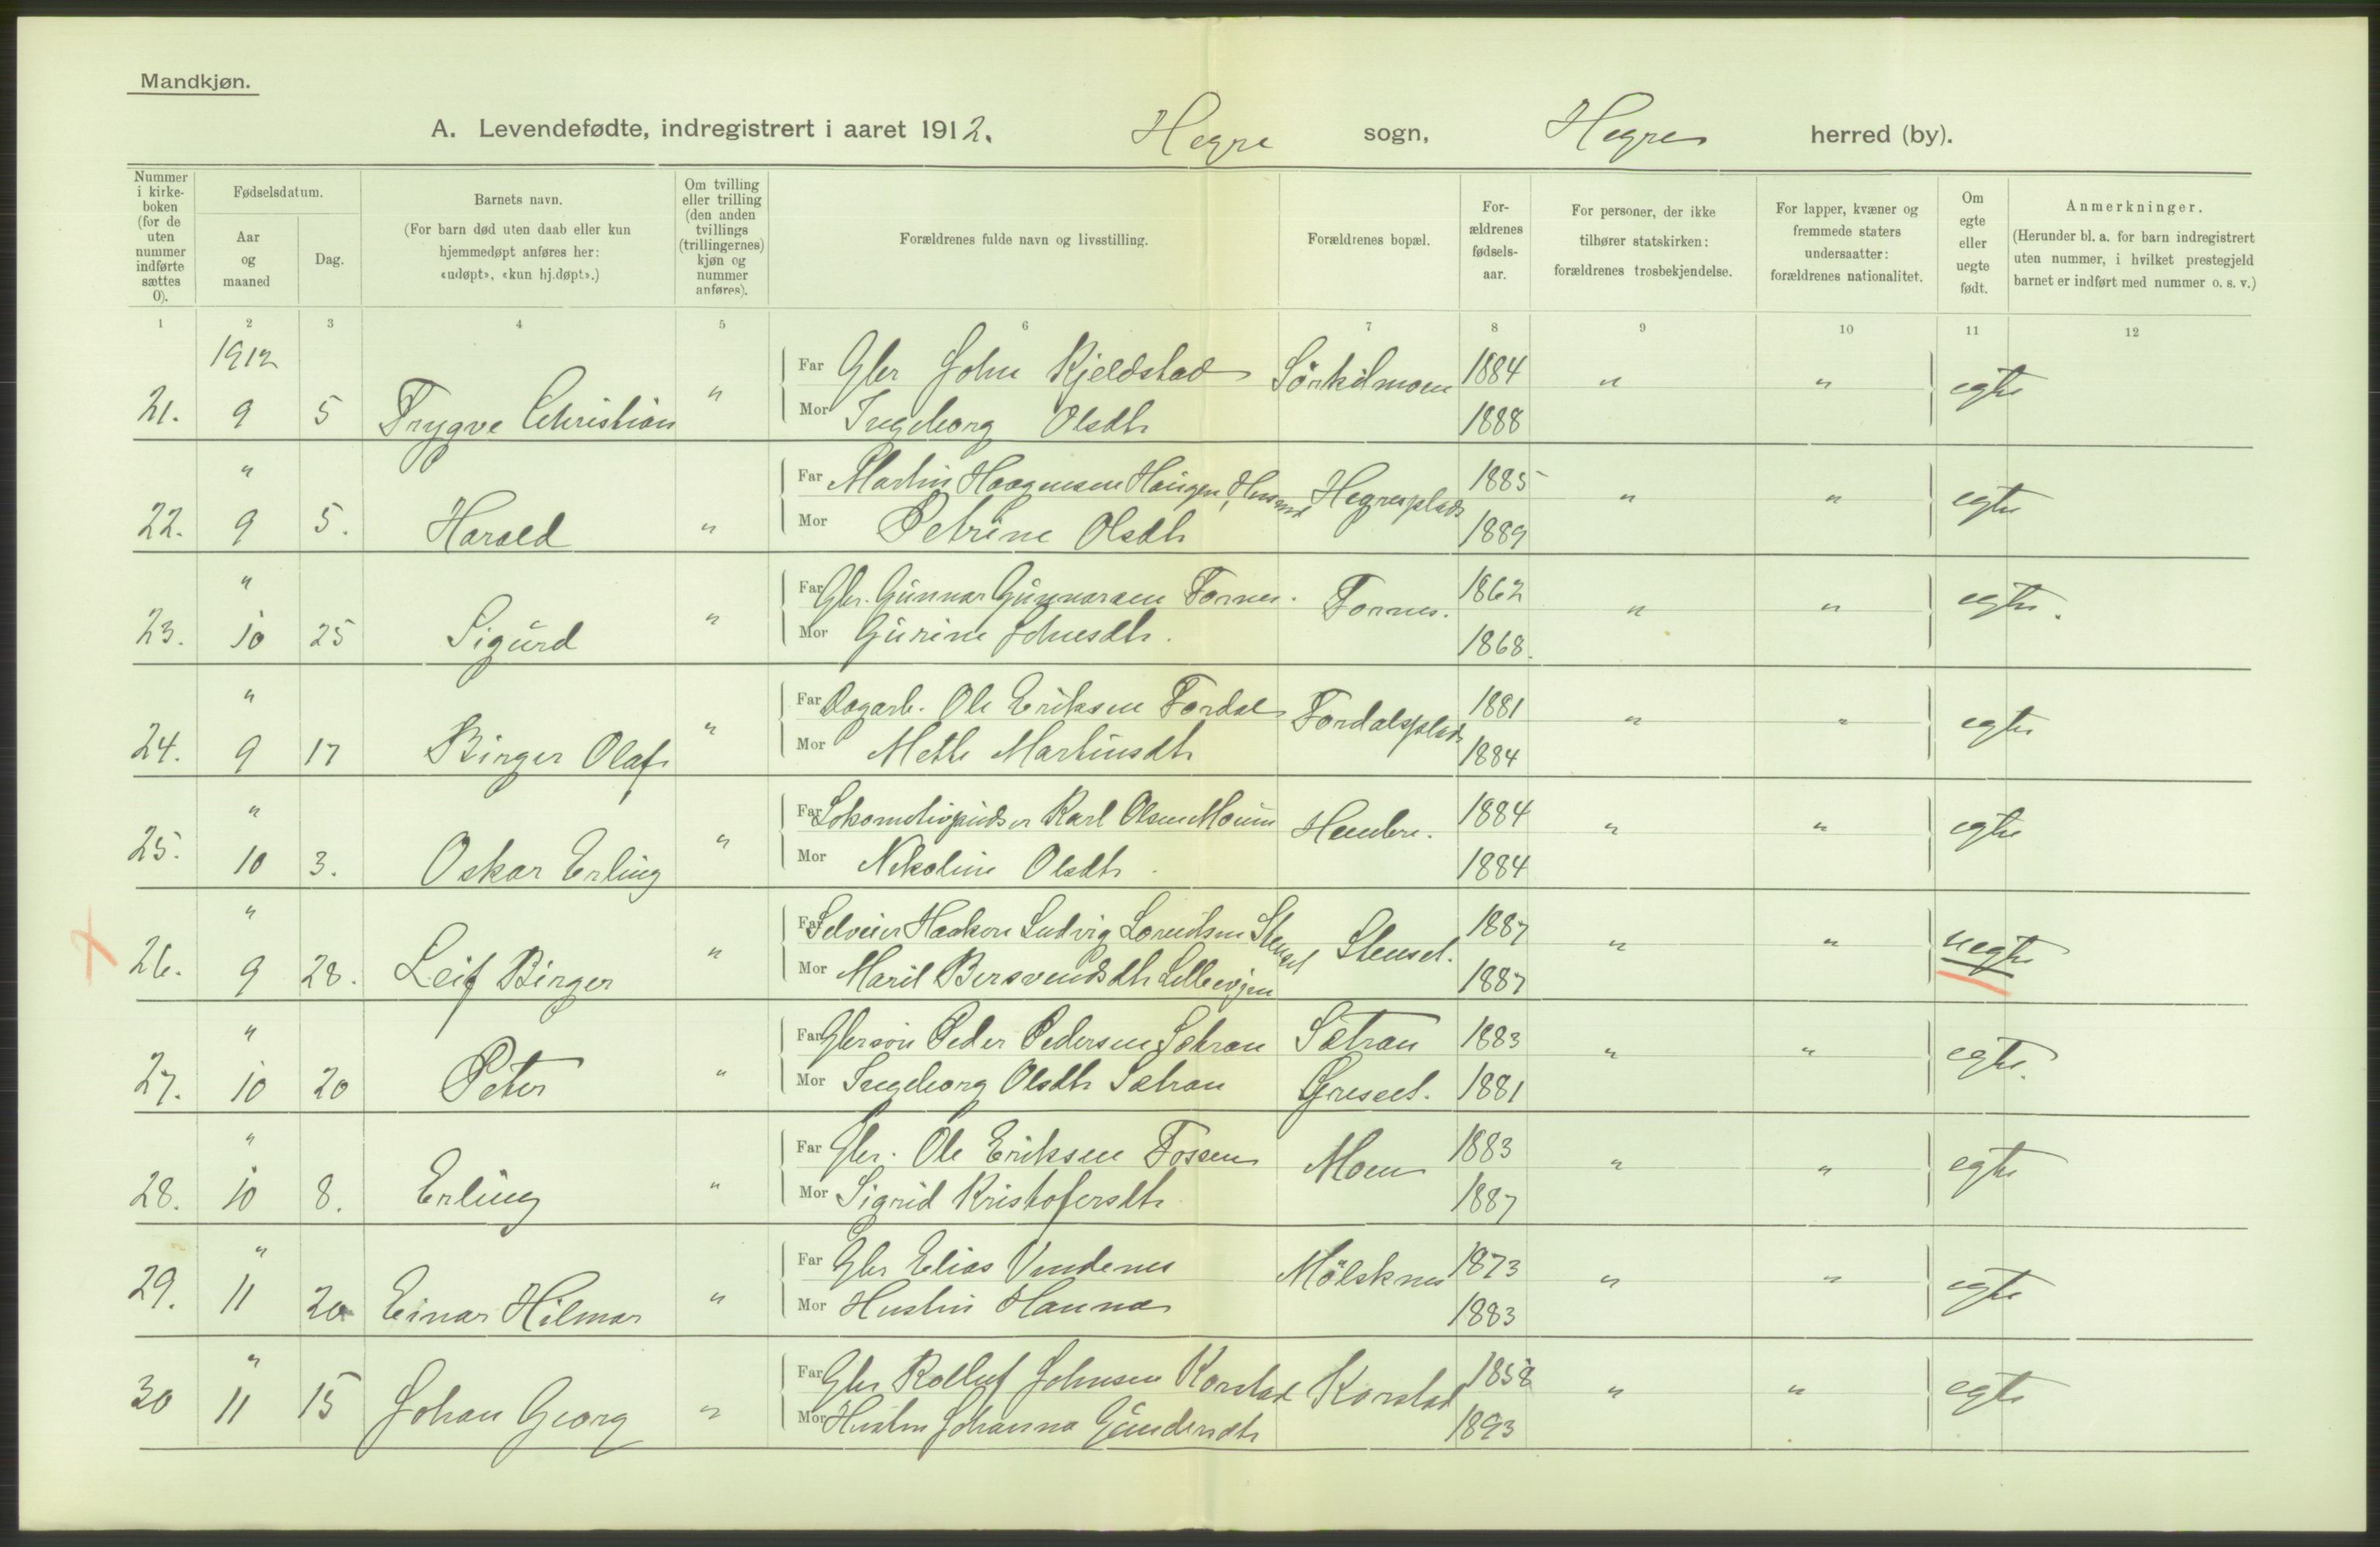 Mandkjøn.
A. Levendefødte, indregistrert i aaret 1912. Hegre sogn, Hegre herred (by).
Nummer i kirke-boken (for de uten nummer indførte sættes 0).
Fødselsdatum.
Aar og maaned
Dag.
Barnets navn.
(For barn død uten daab eller kun
hjemmedøpt anføres her:
«udøpt», «kun hj.døpt».)
Om tvilling
eller trilling
(den anden
tvillings
(trillingernes)
kjøn og
nummer
anføres).
Forældrenes fulde navn og livsstilling.
Forældrenes bopæl.
For-
ældrenes
fødsels-
aar.
For personer, der ikke
tilhører statskirken:
forældrenes trosbekjendelse.
For lapper, kvæner og
fremmede staters
undersaatter:
forældrenes nationalitet.
Om
egte
eller
uegte
født.
Anmerkninger.
(Herunder bl. a. for barn indregistrert
uten nummer, i hvilket prestegjeld
barnet er indført med nummer o. s. v.)
1 2 3 4 5 6 7 8 9 10 11 12
1912
Far Gbr John Kjeldstad 1884 " " egte
21. 9 5 Trygve Christian " Mor Ingeborg Olsdtr 1888
" Far Martin Haagensen Haugen, Husmd Hegresplads 1885 " " egte
22. 9 5. Harald " Mor Petrine Olsdtr 1889
" Far Gbr. Gunnar Gunnarsen Fornes. Fornes. 1862 " " egte.
23. 10 25 Sigurd " Mor Gurine Johnsdtr. 1868.
" Far Dagarb. Ole Eriksen Fordal Fordalsplads 1881 " " egte
24. 9 17 Birger Olaf " Mor Mette Martinsdtr 1884
" Far Lokomotivpudser Karl Olsen Moum Hembre. 1884 " " egte
25. 10 3. Oskar Erling " Mor Nikoline Olsdtr 1884
" Far Selveier Haakon Ludvig Lorntsen Stenset Stenset. 1887 " " uegte
26. 9 28. Leif Birger " Mor Marit Bersvendsdtr Lillevjen 1887
" Far Gbrsøn Peder Pedersen Sætran Sætran 1883 " " egte.
27. 10 20 Peter " Mor Ingeborg Olsdtr Sætran 1881
" Far Gbr. Ole Eriksen Fossen Moen 1883 " " egte
28. 10 8. Erling " Mor Sigrid Kristofersdtr 1887
" Far Gbr Elias Vindenes Mølsknes 1873 " " egte
29. 11 20 Einar Hilmar " Mor Hustru Hanna 1883
" Far Gbr Rolluf Johnsen Korstad Korstad 1858 " " egte
30 11 15 Johan Georg " Mor Hustru Johanna 1893